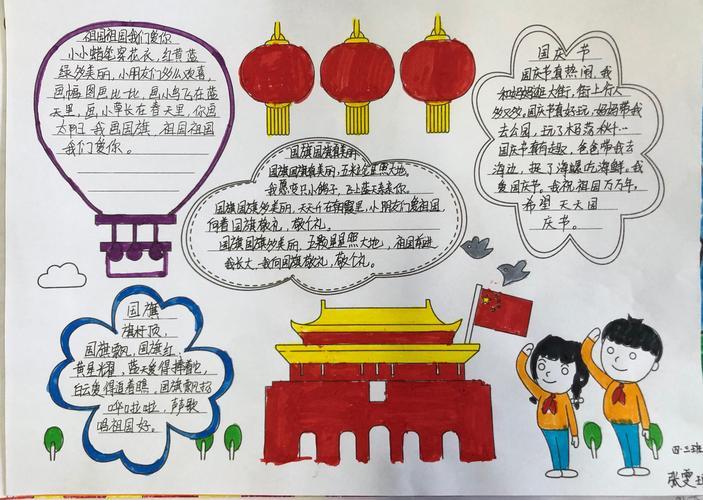 祖国祖国我们爱你
小小蜡笔穿花衣，红黄蓝
绿多美丽，小朋友们多么欢喜，
画幅图画比一比，画小鸟飞在蓝
天里，画小草长在春天里，你画
太阳 我画国旗，祖国祖国
我们爱你。
国旗国旗真美丽
国旗国旗真美丽，五星金星照大地，
我愿变只小鸽子，飞上蓝天亲亲你。
国旗国旗多美丽，天天升在朝霞里，小朋友们爱祖国，
向着国旗敬礼，敬个礼。
国旗国旗多美丽，五颗星星照大地，祖国前进
我长大，我向国旗敬礼，敬个礼。
国庆节
国庆节真热闹，我
和妈妈逛大街，街上行人
多又多，国庆节真好玩，妈妈带我
去公园，玩了木马荡秋千…
国庆节真有趣，爸爸带我去
海边，捉了海螺吃海鲜。我
爱国庆节。我祝祖国万万年，
希望天天国
庆节。
国旗
旗杆顶，
国旗飘，国旗红，
黄星耀，蓝天爱得捧着它，
白云爱得追着瞧，国旗飘扬
哗啦啦，声声歌
唱祖国好。
四三班
张雯